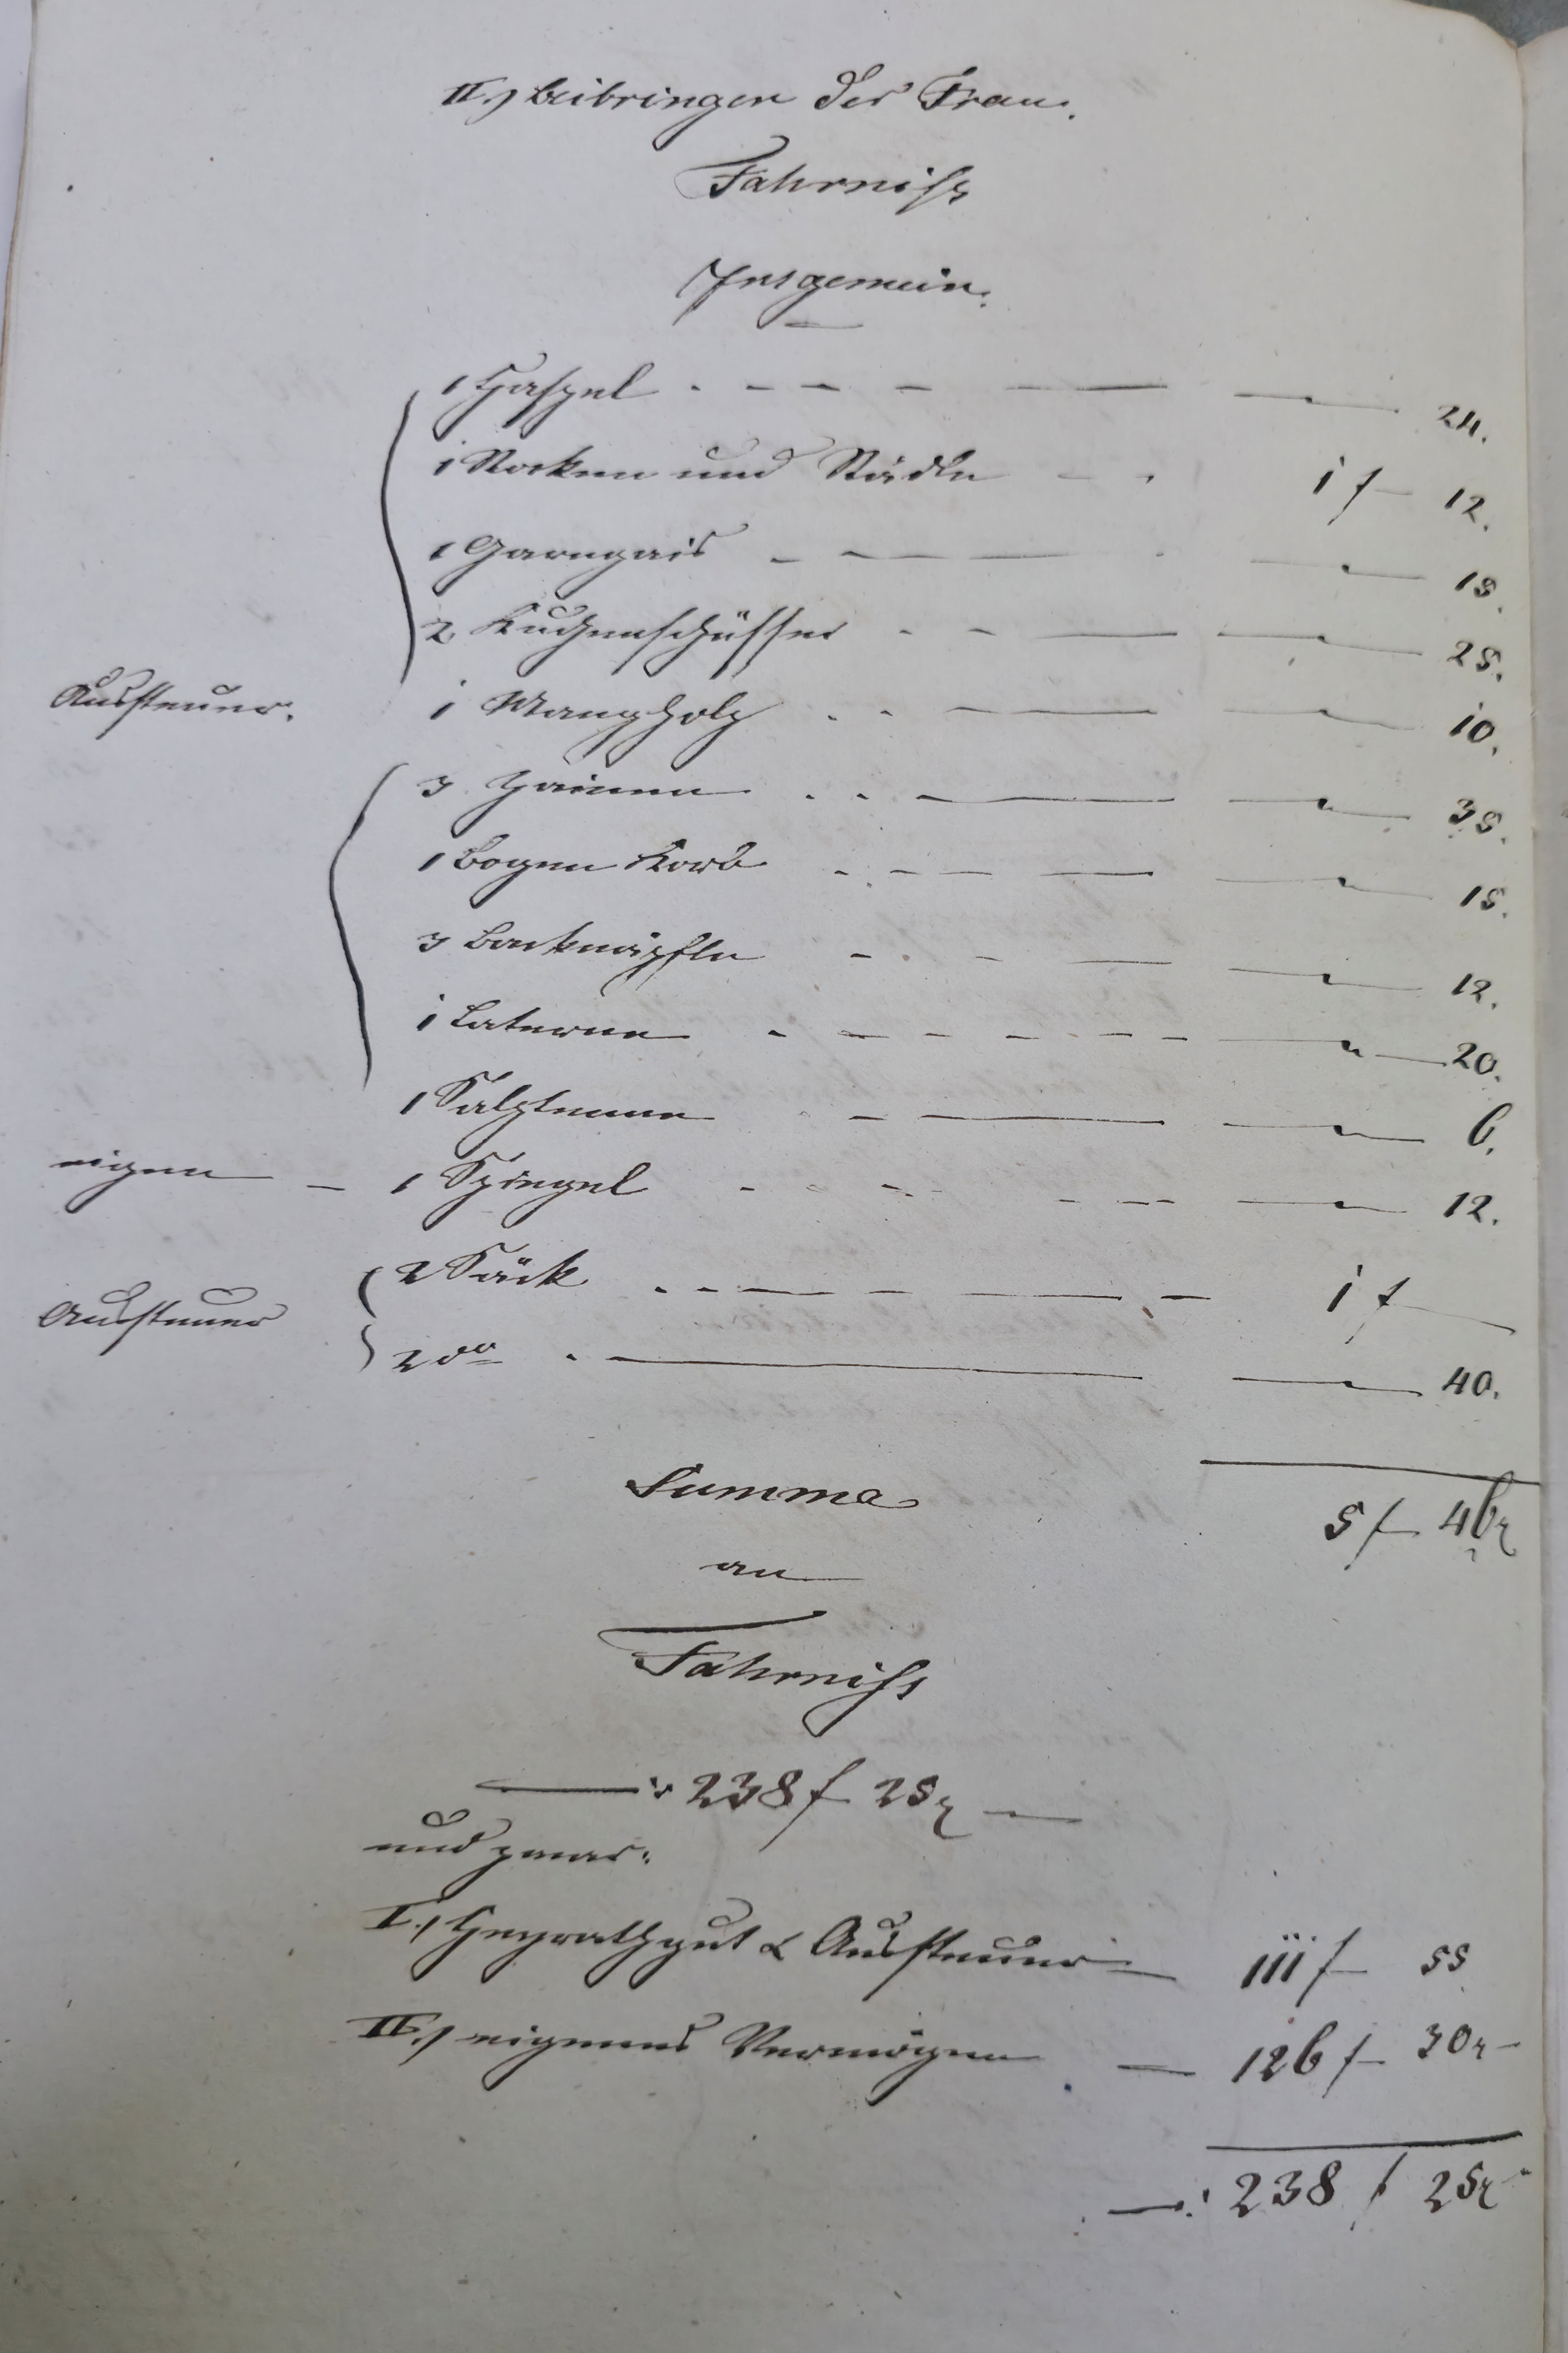 II.) Beibringen der Frau.
Fahrniss
Insgemein.
1 Haspel . - - - — 24.
1 Rocken und Rädle - . 1 f 12.
1 - — 15.
2 Kuchenschüssel . - — 25.
Aussteuer. 1 Mangholz . - — 10.
3 Zainen . . - — 35.
1 Bogen Korb - . - - — 15.
3 Backnäpfle - - — 12.
1 Laterne - - - - - - — 20.
1 - — 6.
eigen — 1 Spiegel - - - - - — 12.
2 Säck . - - — - — 1 f —
Aussteuer 2 do . — 40.
Summa 5 f 46 x
an
Fahrniss
— : 238 f 25 x —
und zwar:
I.) Heyrathgut & Aussteuer — 111 f 55
II.) eigenes Vermögen — 126 f 30 x —
—: 238 f 25 x